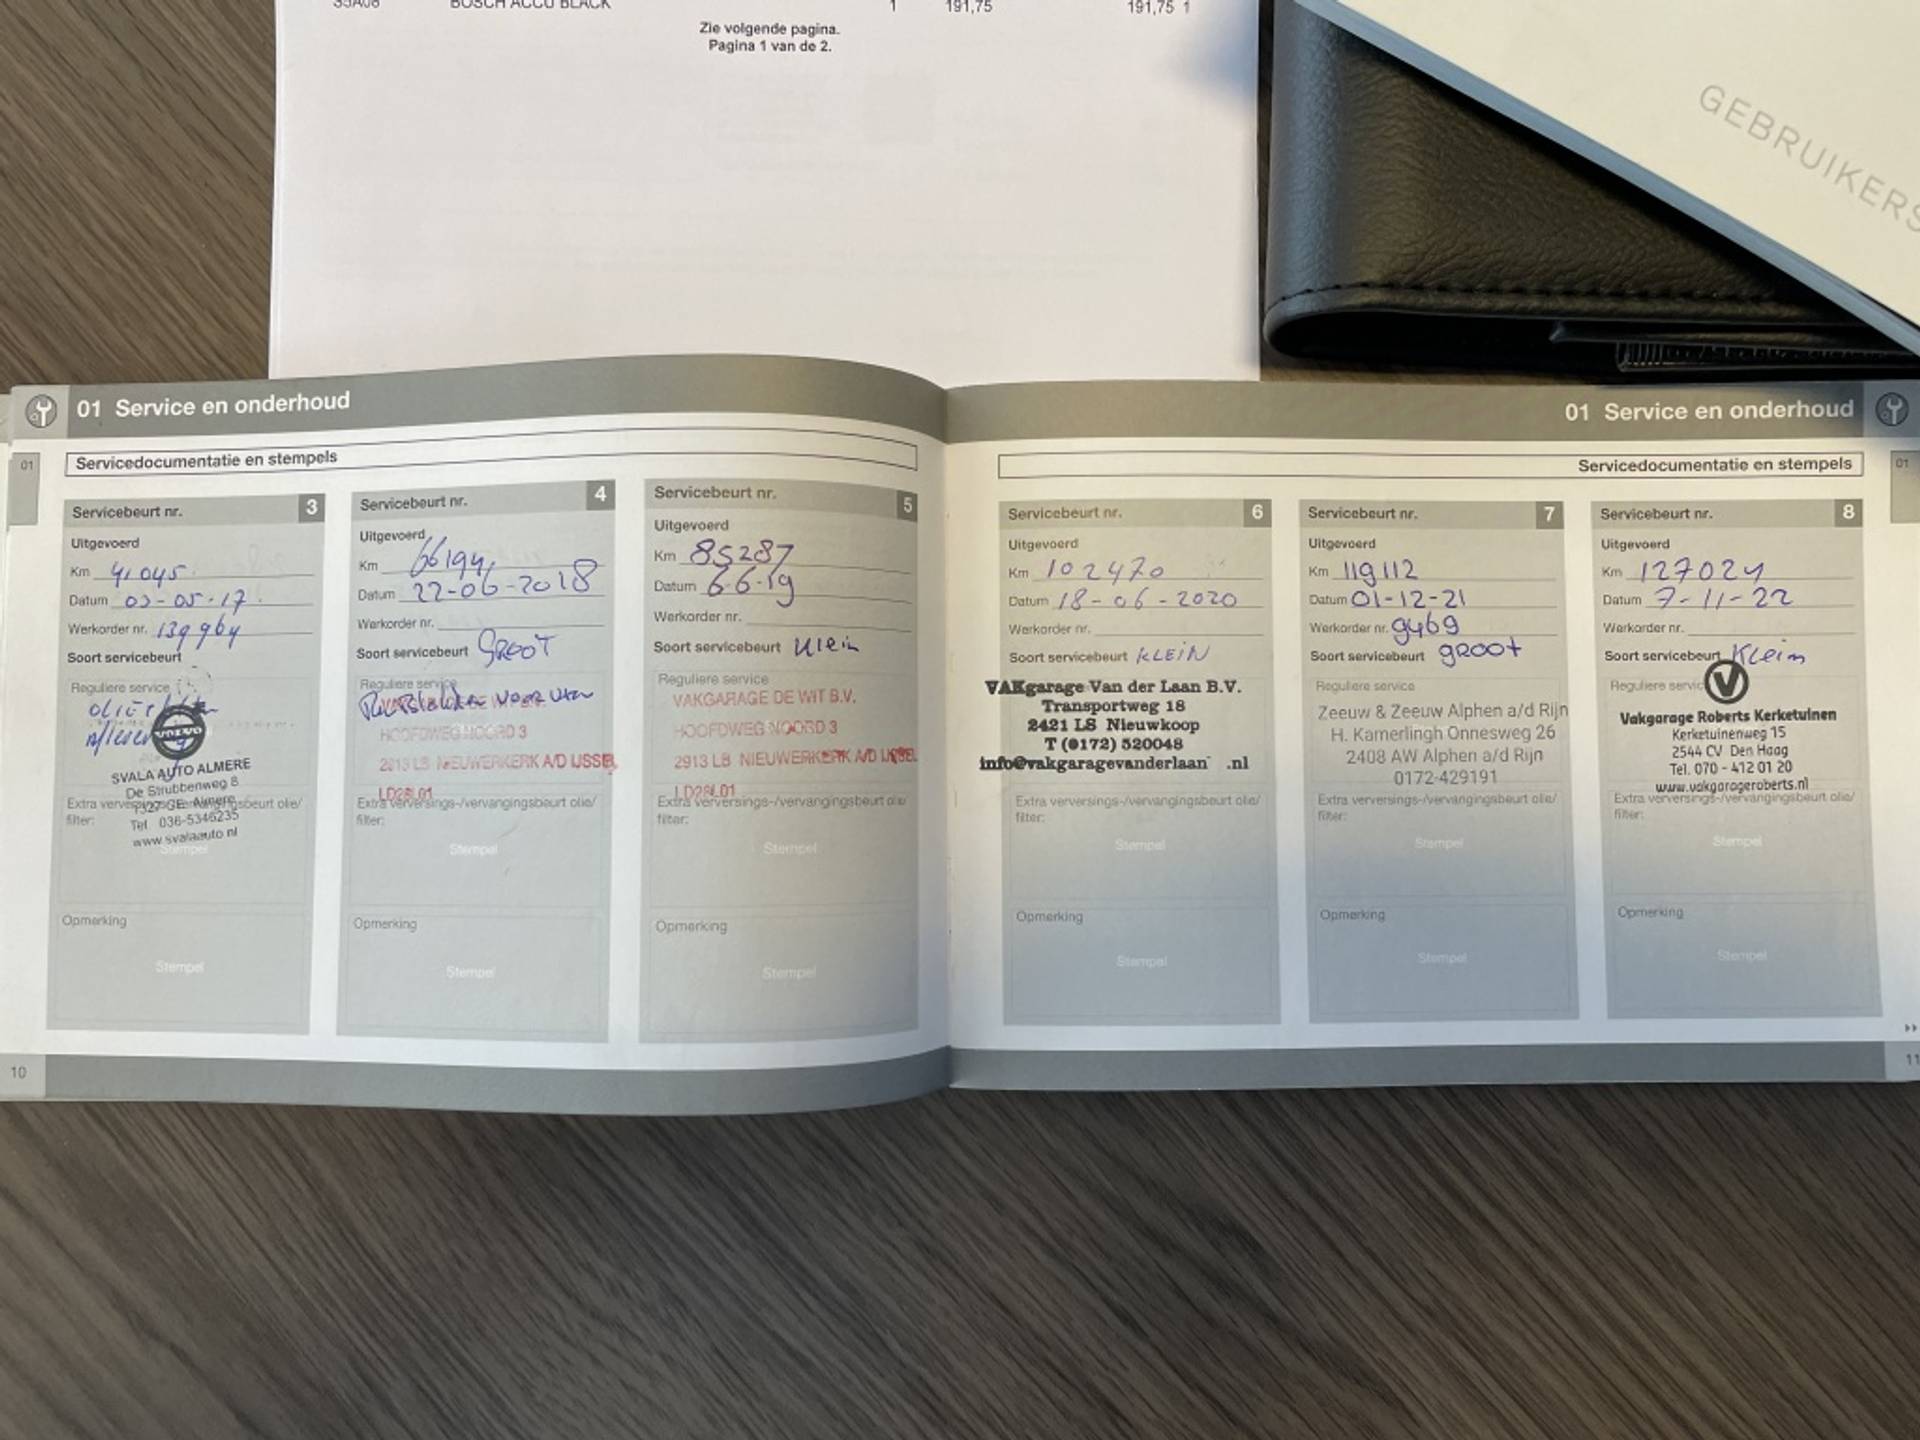 S5A08 BOSCH ACCU BLACK 1 191,75 191,75 1
Zie volgende pagina.
Pagina 1 van de 2.
GEBRUIKERS
01 Service en onderhoud
01
Servicedocumentatie en stempels
Servicebeurt nr. 3
Uitgevoerd
Km 41045
Datum 03-05-17
Werkorder nr. 139964
Soort servicebeurt
Reguliere service
VOLVO
SVALA AUTO ALMERE
De Strubbenweg 8
1327 GE Almere
Tel 036-5346235
www.svalaauto.nl
Extra verversings-/vervangingsbeurt olie/
filter:
Stempel
Opmerking
Stempel
Servicebeurt nr. 4
Uitgevoerd
Km 66194
Datum 22-06-2018
Werkorder nr.
Soort servicebeurt GROOT
Reguliere service
HOOFDWEG NOORD 3
2913 LB NIEUWERKERK A/D IJSSEL
LD28L01
Extra verversings-/vervangingsbeurt olie/
filter:
Stempel
Opmerking
Stempel
Servicebeurt nr. 5
Uitgevoerd
Km 85287
Datum 6-6-19
Werkorder nr.
Soort servicebeurt Klein
Reguliere service
VAKGARAGE DE WIT B.V.
HOOFDWEG NOORD 3
2913 LB NIEUWERKERK A/D IJSSEL
LD28L01
Extra verversings-/vervangingsbeurt olie/
filter:
Stempel
Opmerking
Stempel
10
01 Service en onderhoud
01
Servicedocumentatie en stempels
Servicebeurt nr. 6
Uitgevoerd
Km 102470
Datum 18-06-2020
Werkorder nr.
Soort servicebeurt KLEIN
VAKgarage Van der Laan B.V.
Transportweg 18
2421 LS Nieuwkoop
T (0172) 520048
info@vakgaragevanderlaan .nl
Extra verversings-/vervangingsbeurt olie/
filter:
Stempel
Opmerking
Stempel
Servicebeurt nr. 7
Uitgevoerd
Km 119112
Datum 01-12-21
Werkorder nr. 9469
Soort servicebeurt GROOt
Reguliere service
Zeeuw & Zeeuw Alphen a/d Rijn
H. Kamerlingh Onnesweg 26
2408 AW Alphen a/d Rijn
0172-429191
Extra verversings-/vervangingsbeurt olie/
filter:
Stempel
Opmerking
Stempel
Servicebeurt nr. 8
Uitgevoerd
Km 127024
Datum 7-11-22
Werkorder nr.
Soort servicebeurt Klein
Reguliere service
V
Vakgarage Roberts Kerketuinen
Kerketuinenweg 15
2544 CV Den Haag
Tel. 070 - 412 01 20
www.vakgarageroberts.nl
Extra verversings-/vervangingsbeurt olie/
filter:
Stempel
Opmerking
Stempel
11